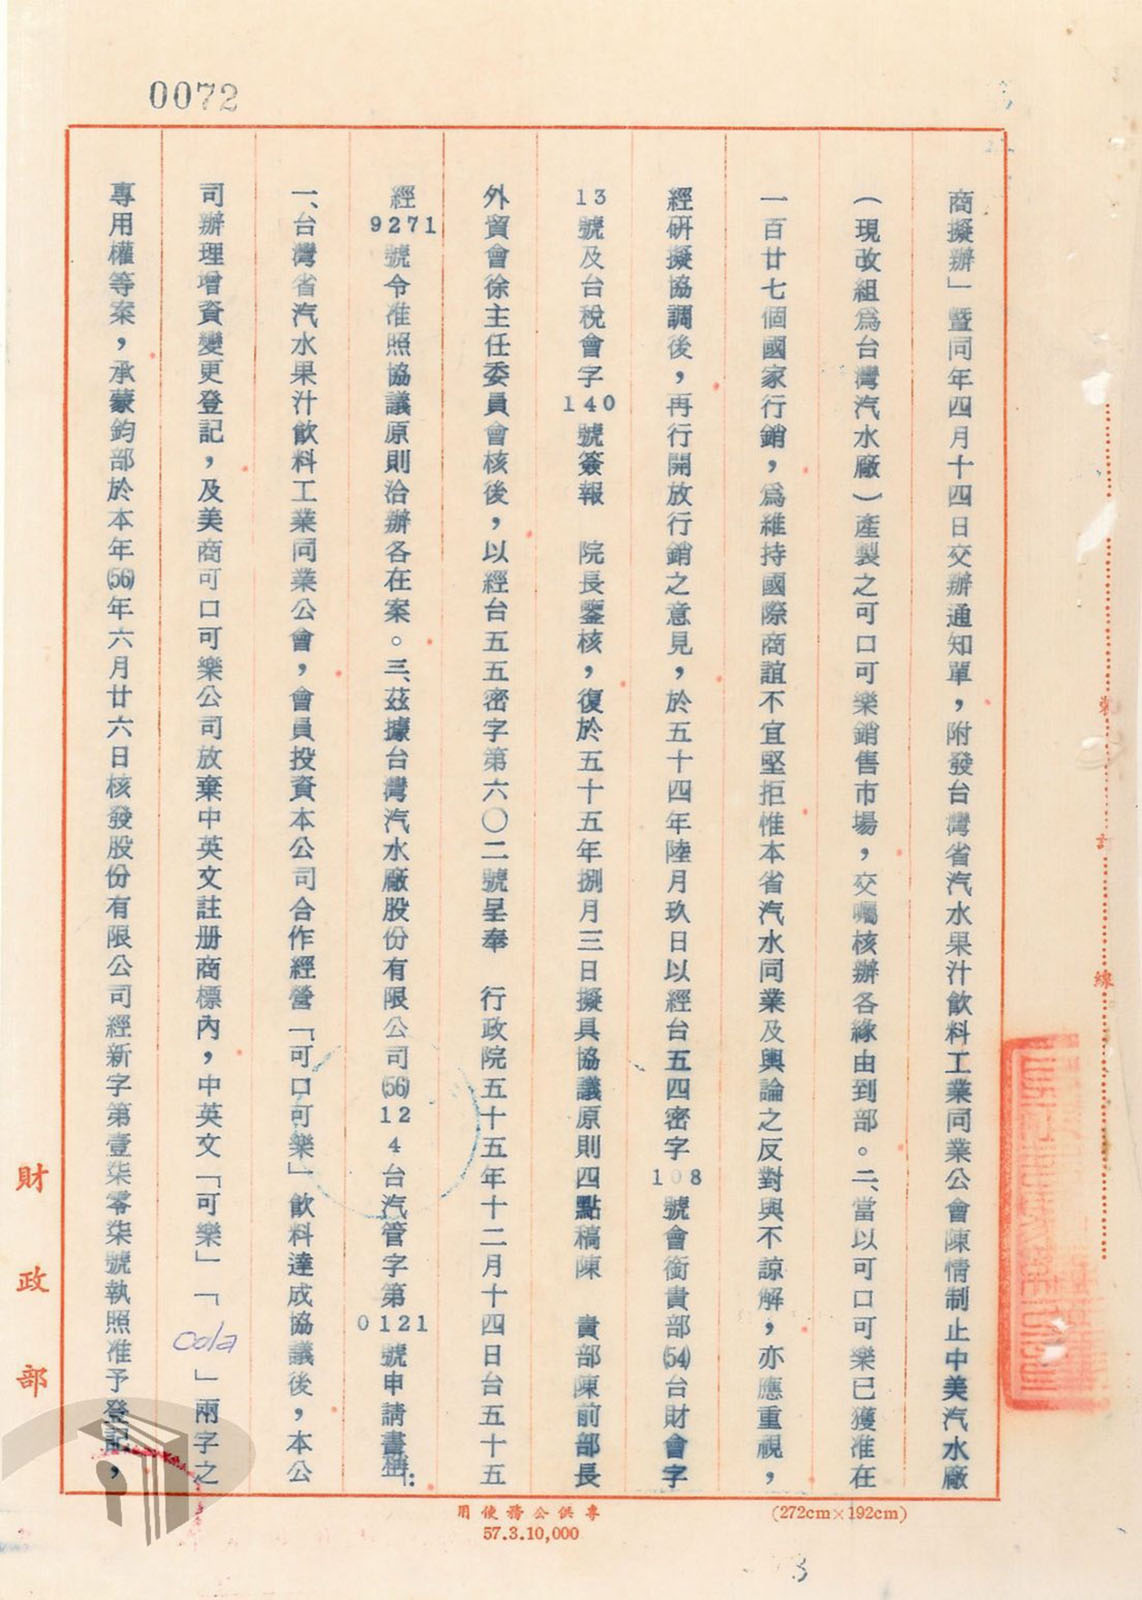 0072
商擬辦」暨同年四月十四日交辦通知單，附發台灣省汽水果汁飲料工業同業公會陳情制止中美汽水廠
（現改組爲台灣汽水廠）產製之可口可樂銷售市場，交囑核辦各緣由到部。二、當以可口可樂已獲准在
一百廿七個國家行銷，爲維持國際商誼不宜堅拒惟本省汽水同業及輿論之反對與不諒解，亦應重視，
經研擬協調後，再行開放行銷之意見，於五十四年陸月玖日以經台五四密字108號會銜貴部(54)台財會字
13號及台稅會字140號簽報　院長鑒核，復於五十五年捌月三日擬具協議原則四點稿陳　貴部陳前部長
外貿會徐主任委員會核後，以經台五五密字第六〇二號呈奉　行政院五十五年十二月十四日台五十五
經9271號令准照協議原則洽辦各在案。三、茲據台灣汽水廠股份有限公司(56)124台汽管字第0121號申請書稱：
一、台灣省汽水果汁飲料工業同業公會，會員投資本公司合作經營「可口可樂」飲料達成協議後，本公
司辦理增資變更登記，及美商可口可樂公司放棄中英文註册商標內，中英文「可樂」「cola」兩字之
專用權等案，承蒙鈞部於本年(56)年六月廿六日核發股份有限公司經新字第壹柒零柒號執照准予登記，
財政部
裝
訂
線
專供公務使用
57.3.10,000
(272cm×192cm)